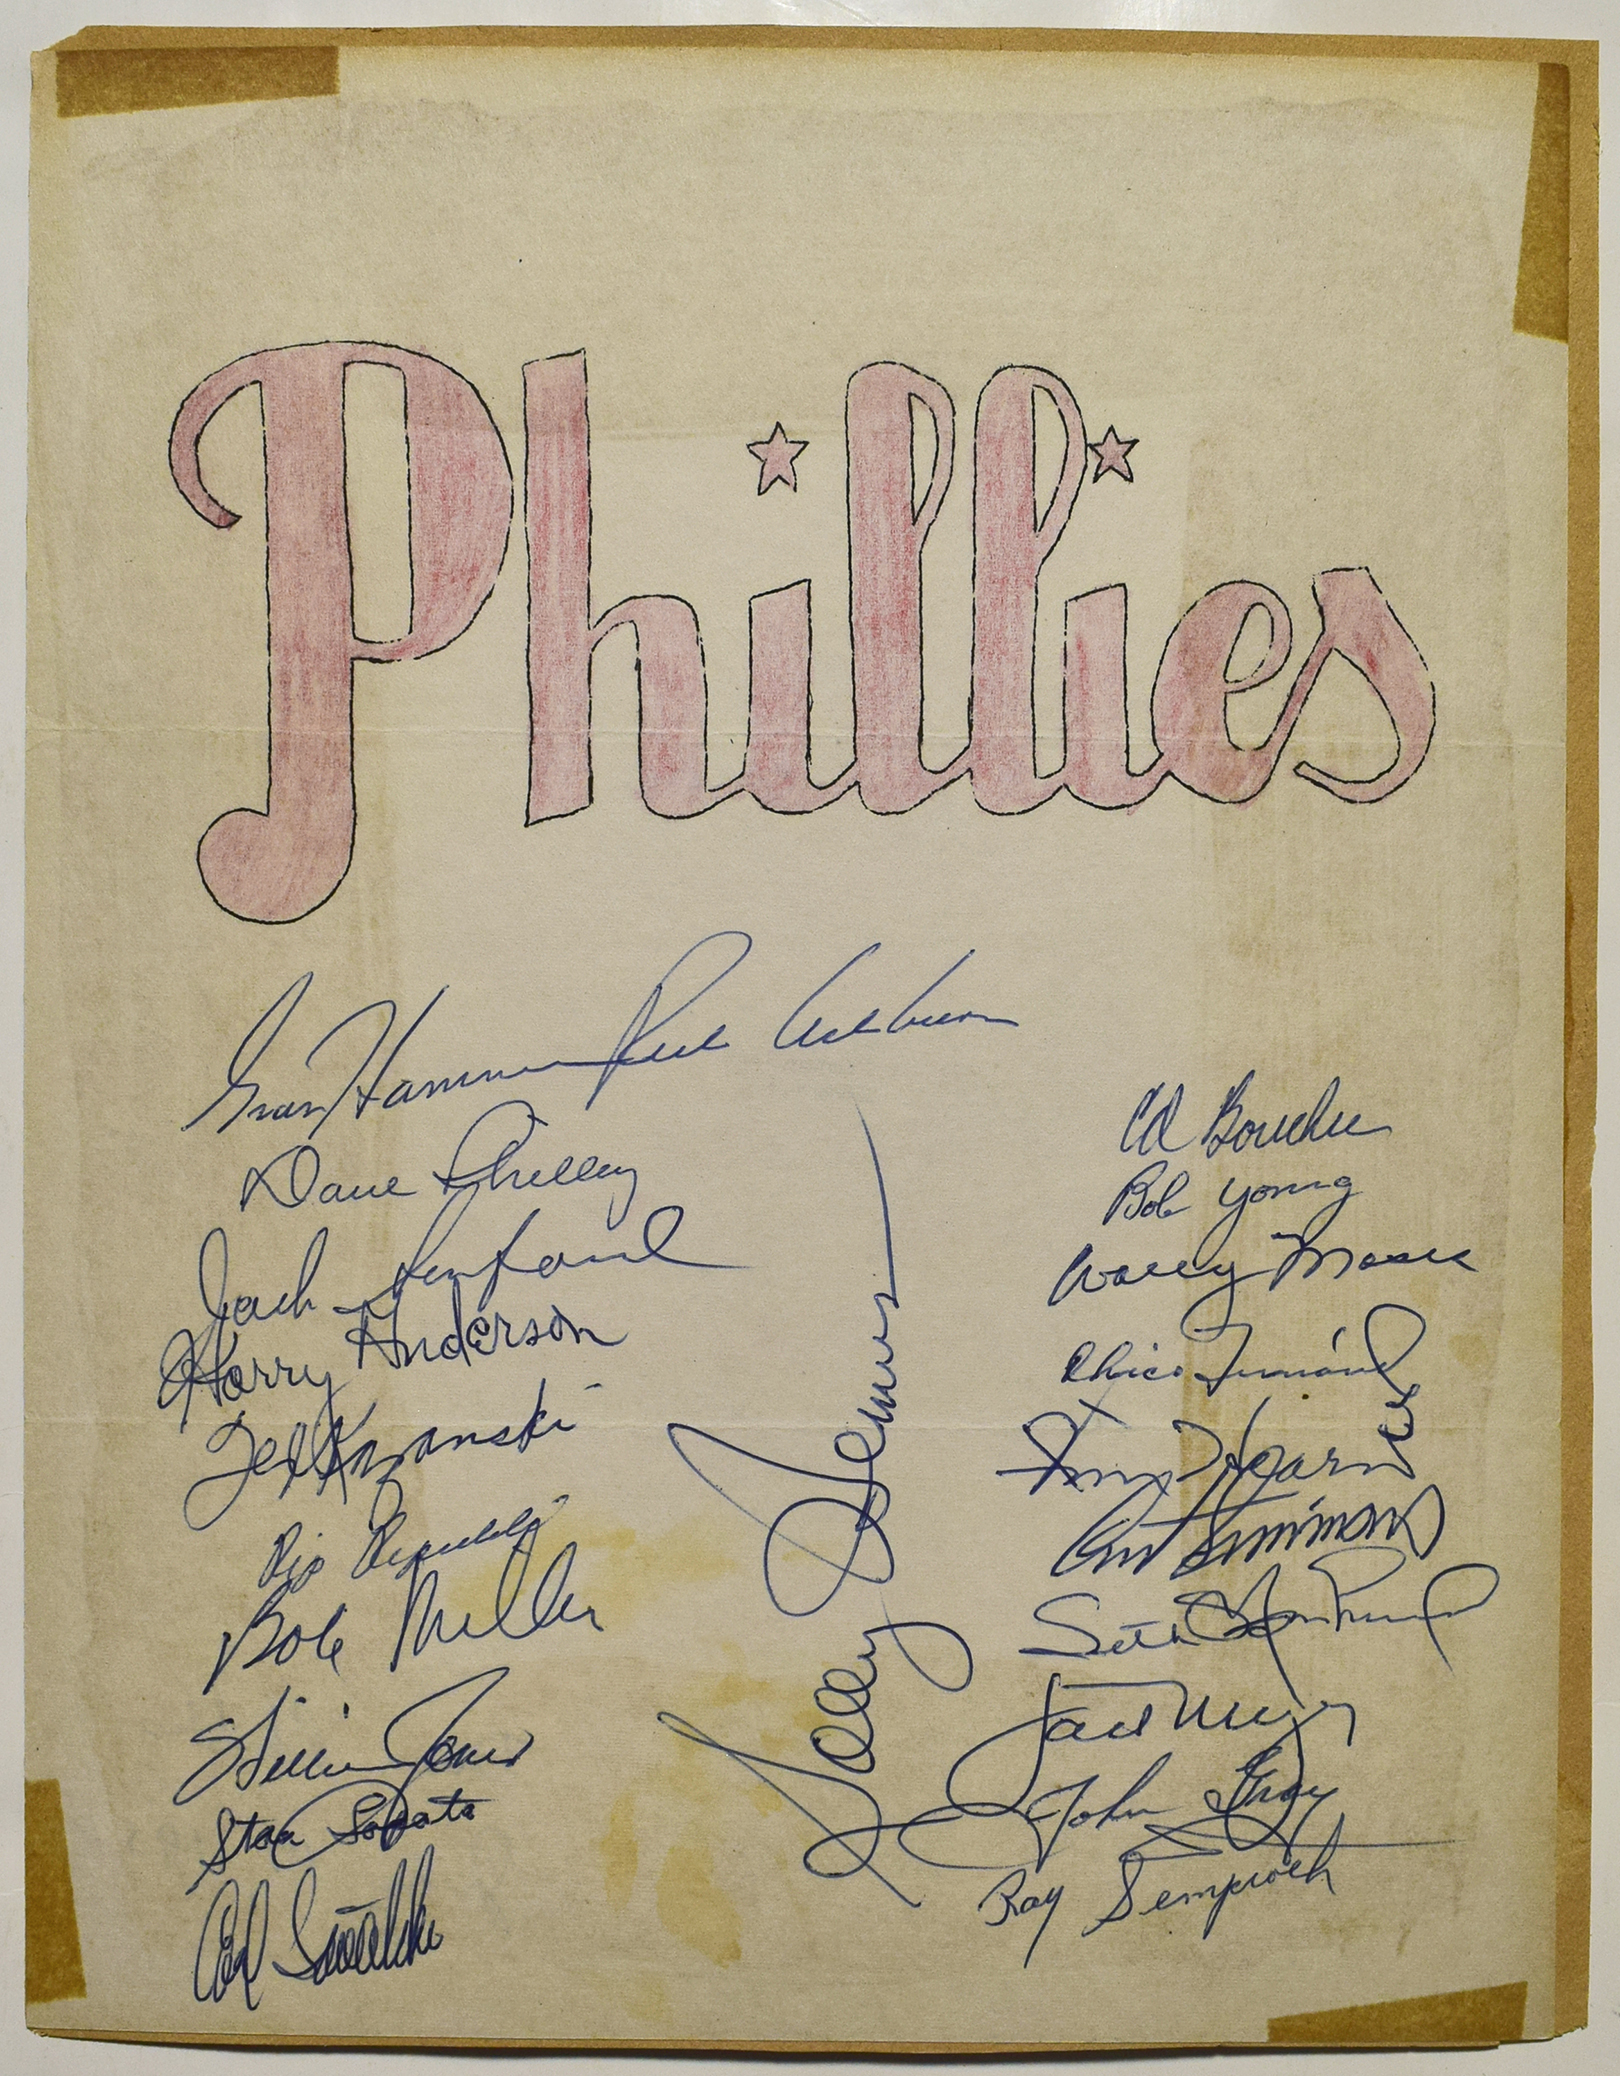 Phillies
Gran Hamner Rich Ashburn
Dave Philley
Jack Sanford
Harry Anderson
Ted Kazanski
Rip Repulski
Bob Miller
Willie Jones
Stan Lopata
Carl Sawatski
Solly Hemus
Ed Bouchee
Bob Young
Wally Moses
Chico Fernández
Jim Hearn
Curt Simmons
Seth Morehead
Jack Meyer
John Gray
Ray Semproch